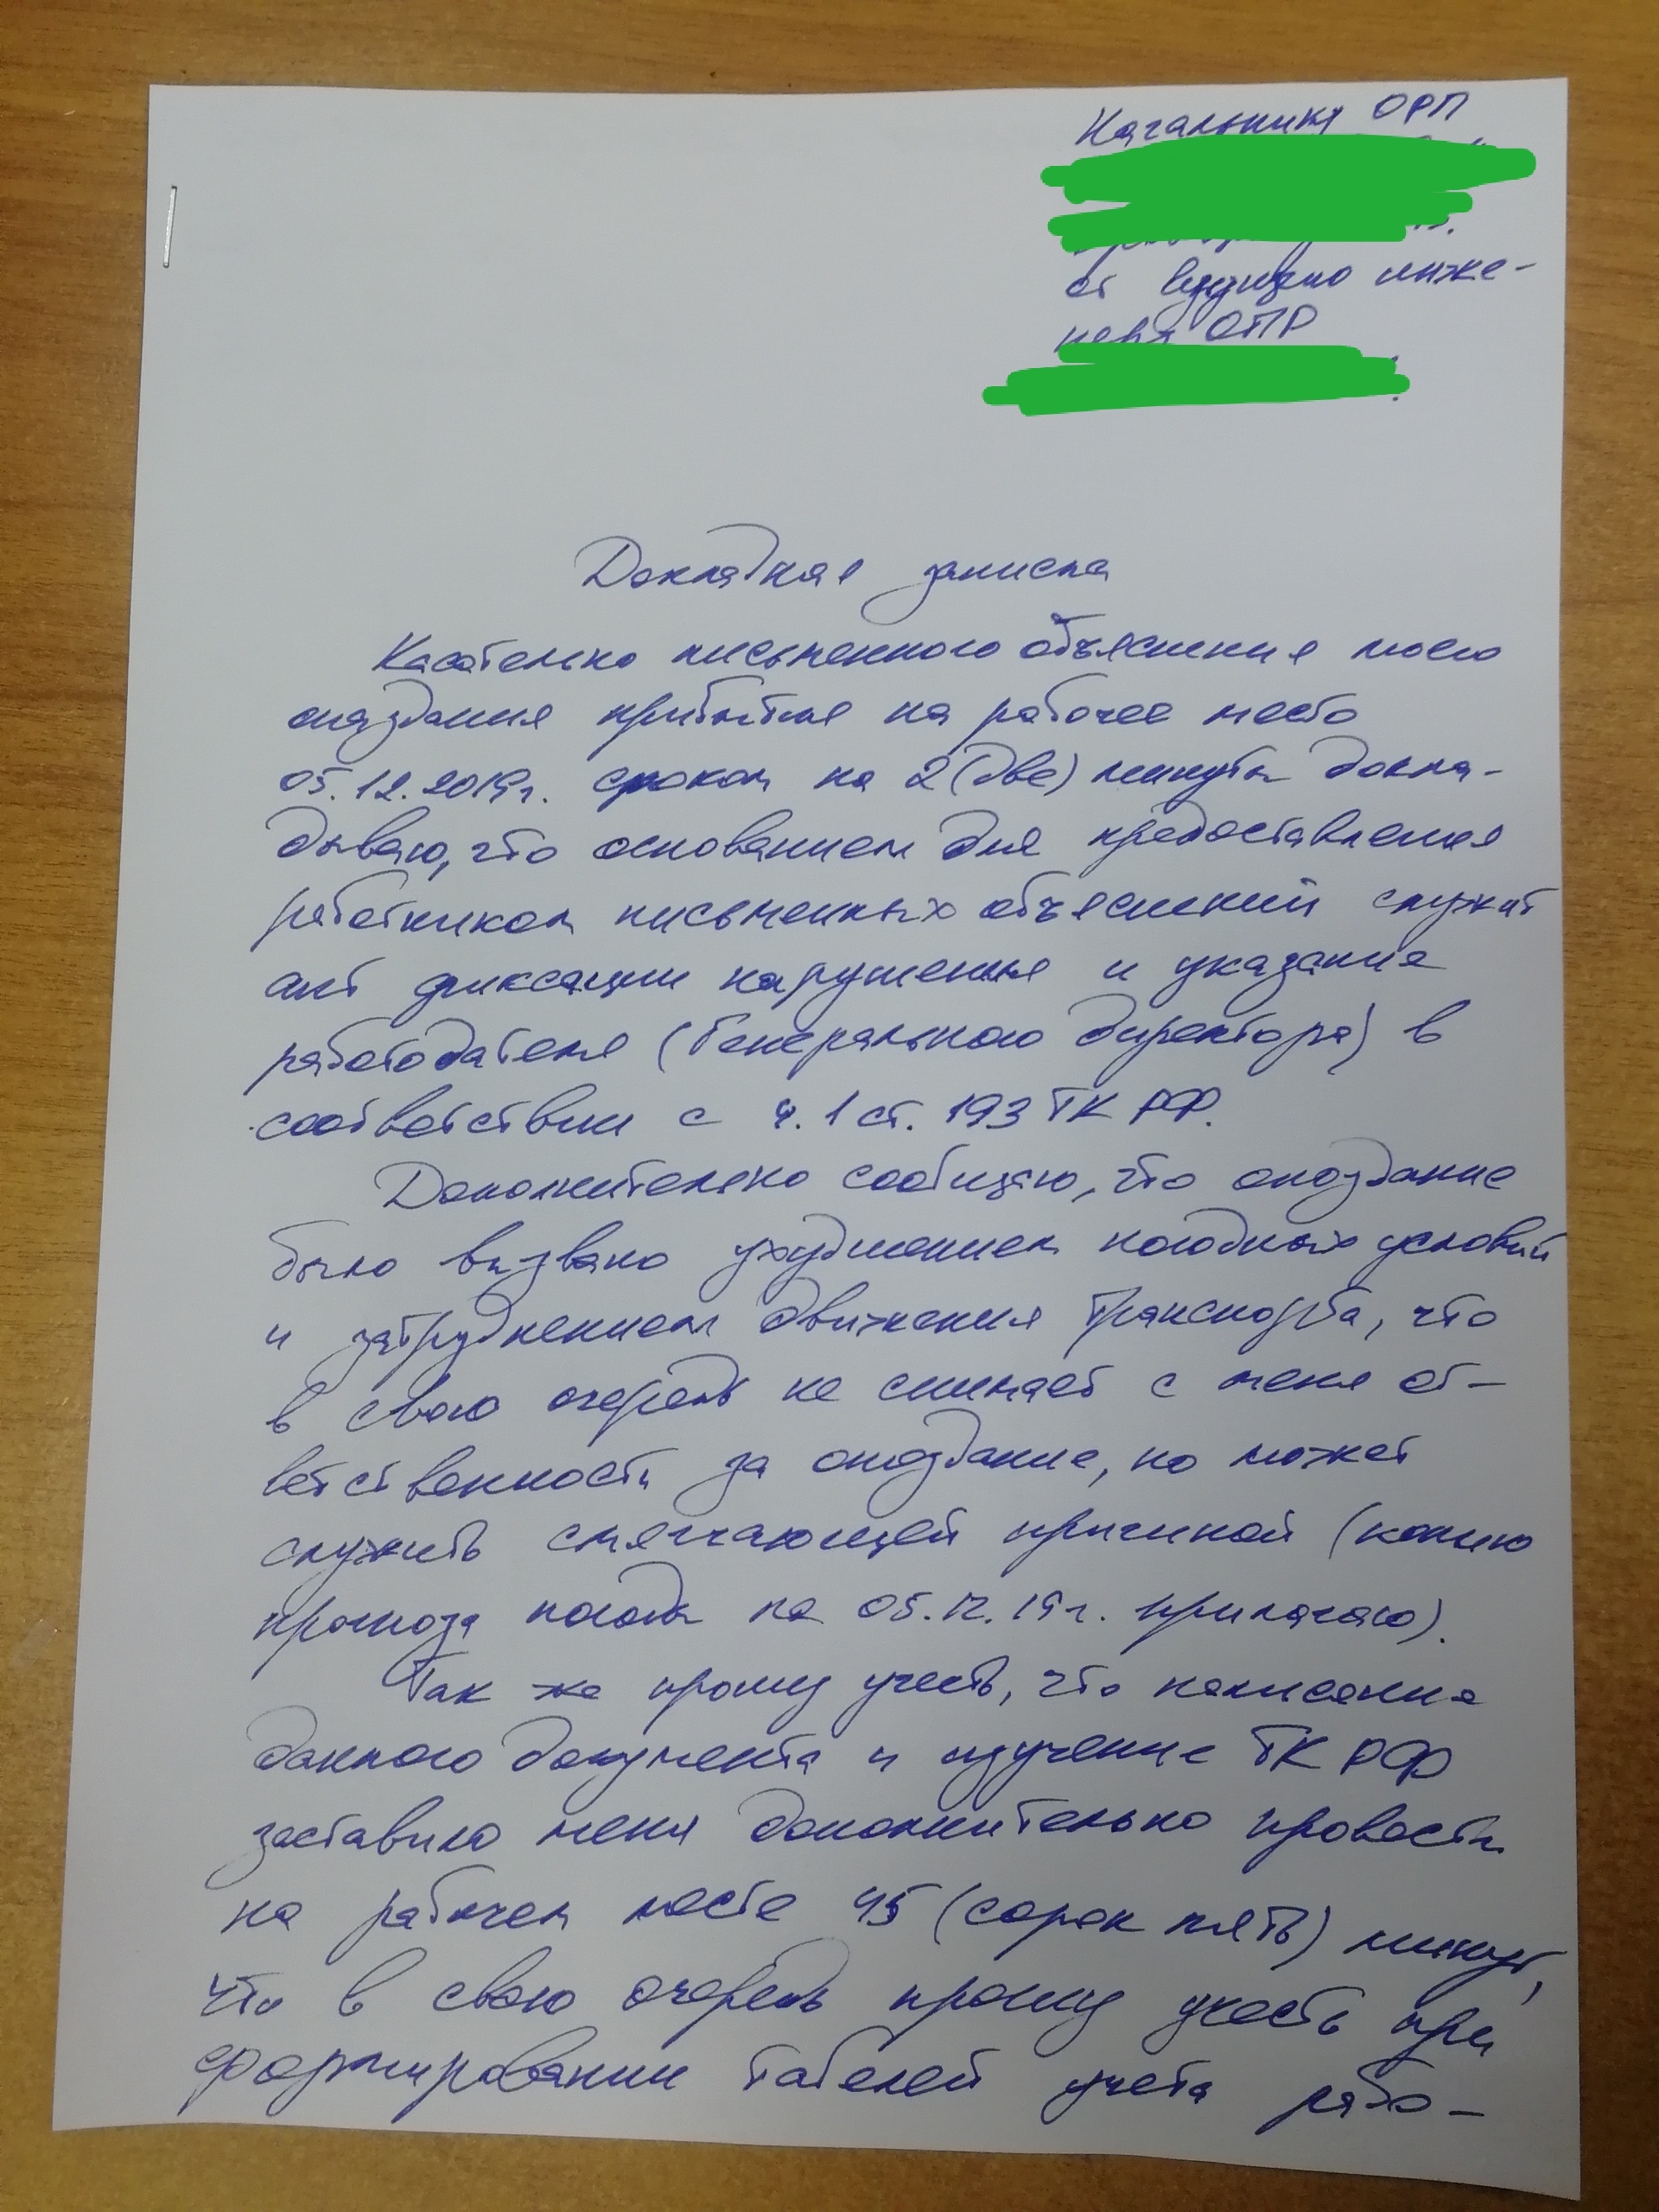 Начальнику ОРП
от ведущего инже-
нера ОПР
Докладная записка
Касательно письменного объяснения моего
опаздания прибытия на рабочее место
05.12.2019г. сроком на 2 (две) минуты докла-
дываю, что основанием для предоставления
работником письменных объяснений служит
акт фиксации нарушения и указание
работодателя (Генерального директора) в
соответствии с ч.1 ст. 193 ТК РФ.
Дополнительно сообщаю, что опоздание
было вызвано ухудшением погодных условий
и затруднением движения транспорта, что
в свою очередь не снимает с меня от-
ветственности за опоздание, но может
служить смягчающей причиной (копию
прогноза погоды на 05.12.19г. прилагаю).
Так же прошу учесть, что написание
данного документа и изучение ТК РФ
заставило меня дополнительно провести
на рабочем месте 45 (сорок пять) минут,
что в свою очередь прошу учесть при
формировании табелей учета рабо-